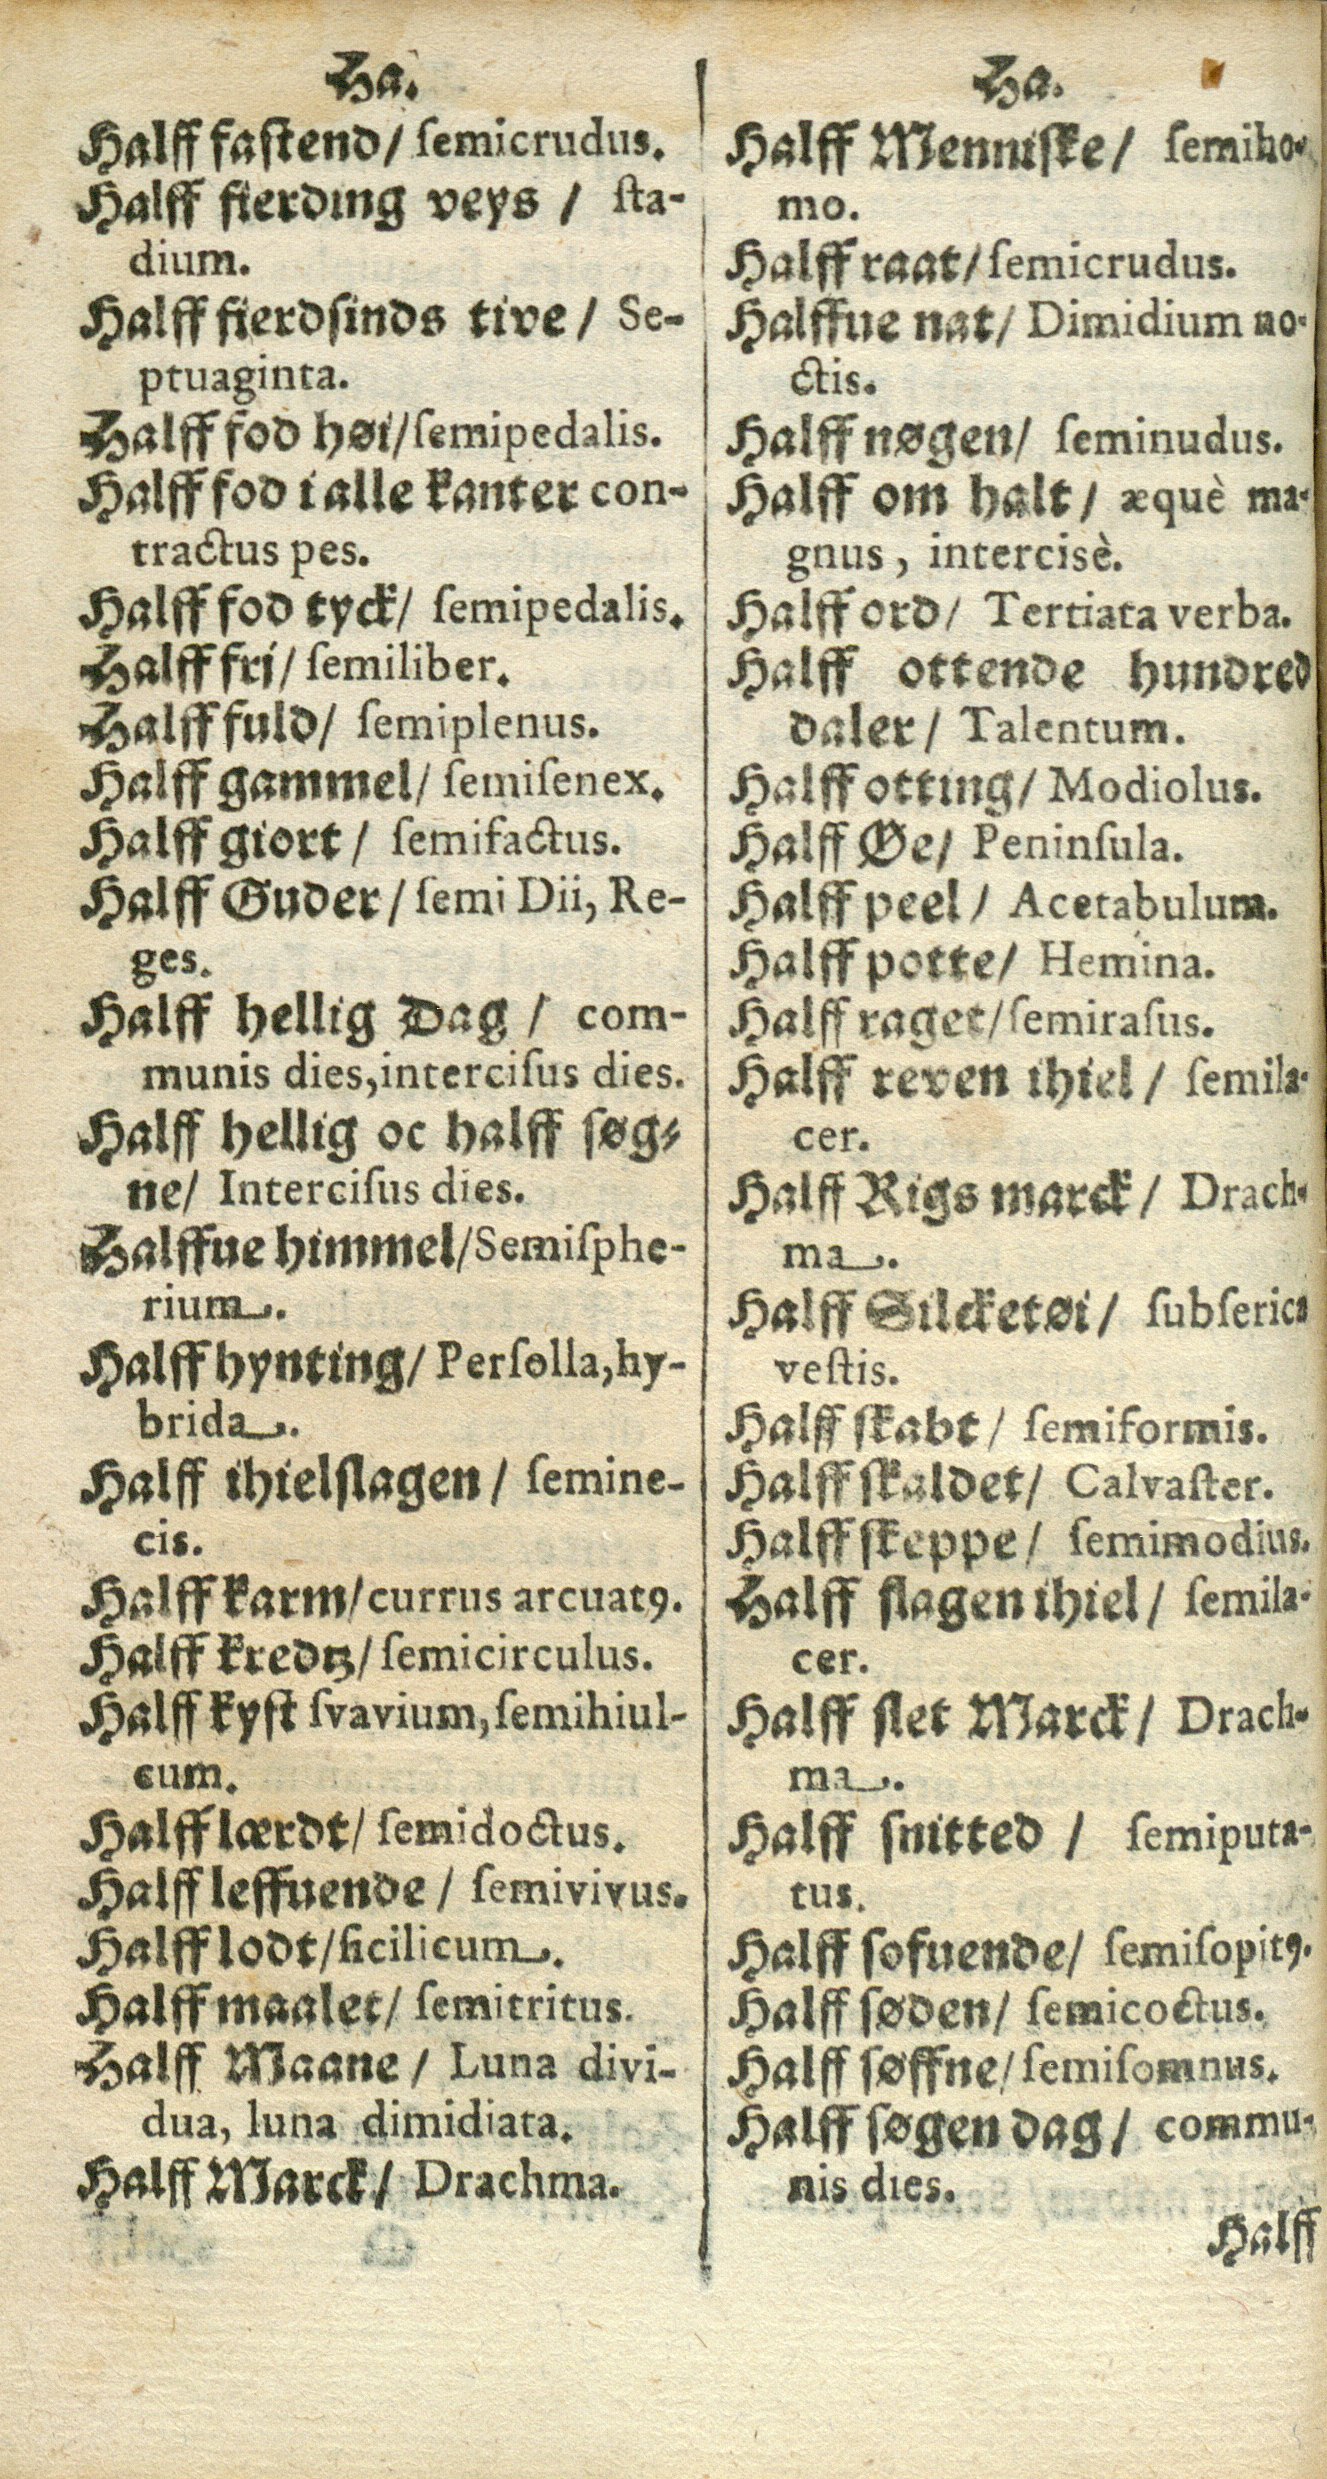 Ha.
Halff fastend/ ſemicrudus.
Halff fierding veys / ſta-
dium.
Halff fierdſinds tive / Se-
ptuaginta.
Halff fod høi/ſemipedalis.
Halff fod i alle kanter con-
tractus pes.
Halff fod tyck/ ſemipedalis.
Halff fri/ ſemiliber.
Halff fuld/ ſemiplenus.
Halff gammel/ ſemiſenex.
Halff giort / ſemifactus.
Halff Guder / ſemi Dii, Re-
ges.
Halff hellig Dag / com-
munis dies,interciſus dies.
Halff hellig oc halff ſøg-
ne/ Interciſus dies.
Halffue himmel/Semiſphe-
rium.
Halff hynting/ Perſolla,hy-
brida.
Halff ihielſlagen / ſemine-
cis.
Halff karm/currus arcuatꝰ.
Halff kredtz/ſemicirculus.
Halff kyſt ſvavium,ſemihiul-
cum.
Halff lærdt/ ſemidoctus.
Halff leffuende / ſemivivus.
Halff lodt/ſicilicum.
Halff maalet/ ſemitritus.
Halff Maane / Luna divi-
dua, luna dimidiata.
Halff Marck/ Drachma.
Ha.
Halff Menniſke/ ſemiho-
mo.
Halff raat/ſemicrudus.
Halffue nat/ Dimidium no-
ctis.
Halff nøgen/ ſeminudus.
Halff om halt / æquè ma-
gnus, intercisè.
Halff ord/ Tertiata verba.
Halff ottende hundred
daler/ Talentum.
Halff otting/ Modiolus.
Halff Øe/ Peninſula.
Halff peel / Acetabulum.
Halff potte/ Hemina.
Halff raget/ſemiraſus.
Halff reven ihiel / ſemila-
cer.
Halff Rigs marck/ Drach-
ma.
Halff Silcketøi/ ſubſerica
veſtis.
Halff ſkabt / ſemiformis.
Halff ſkaldet/ Calvaſter.
Halff ſkeppe/ ſemimodius.
Halff ſlagen ihiel / ſemila-
cer.
Halff ſlet Marck/ Drach-
ma.
Halff ſnitted / ſemiputa-
tus.
Halff ſofuende/ ſemiſopitꝰ.
Halff ſøden/ ſemicoctus.
Halff ſøffne/ſemiſomnus.
Halff ſøgen dag / commu-
nis dies.
Halff